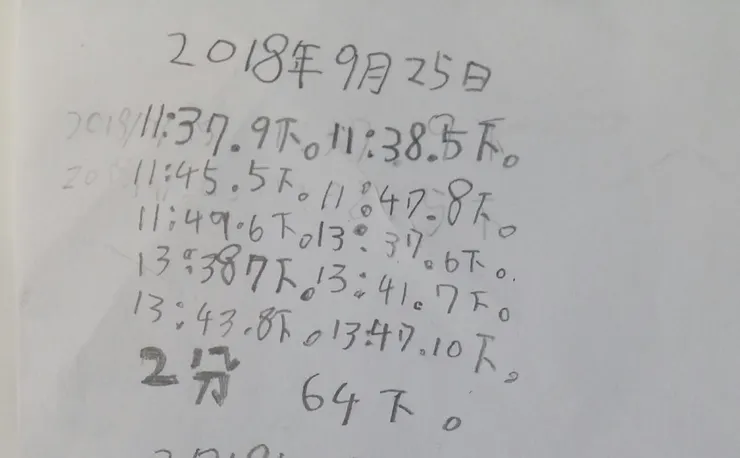 2018年9月25日
11:37.9下。11:38.5下。
11:45.5下。11:47.8下。
11:49.6下。13:37.6下。
13:387下。13:41.7下。
13:43.8下。13:47.10下。
2分 64下。